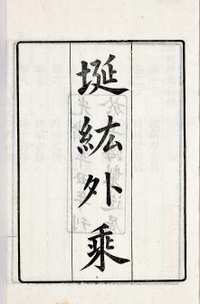 埏紘外乘